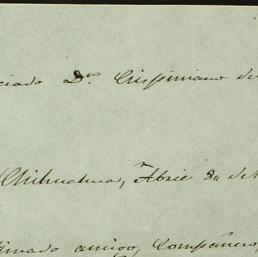 ciado Dn. Crispiniano del
Chihuahua, Abril 8 de
timado amigo, Compañero,